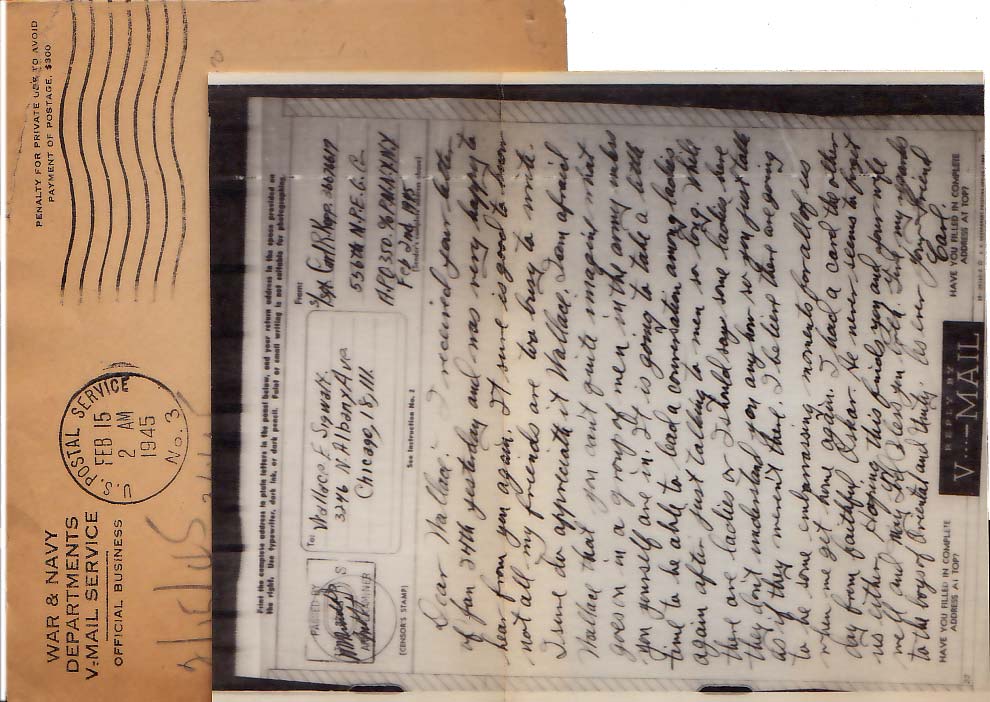 WAR & NAVY
DEPARTMENTS
V-MAIL SERVICE
OFFICIAL BUSINESS
U.S. POSTAL SERVICE
FEB 15
2 AM
1945
No. 3
PENALTY FOR PRIVATE USE TO AVOID
PAYMENT OF POSTAGE, $300
2/15/45
Print the complete address in plain letters in the panel below, and your return address in the space provided on
the right. Use typewriter, dark ink, or dark pencil. Faint or small writing is not suitable for photographing.
PASSED BY
EXAMINER
(CENSOR'S STAMP)
To: Wallace E
3246 N. Albany Ave
Chicago, 18, Ill.
See Instruction No. 2
From:
Carl R.
558th M.P.E.G. Co.
APO 350, % P.M. N.Y. N.Y
Feb 2nd 1945
(Sender's complete address above)
Dear Wallace: I received your letter
of Jan 24th yesterday and was very happy to
hear from you again. It sure is good to know
not all my friends are too busy to write.
I sure do appreciate it Wallace. I am afraid
Wallace that you can't quite imagine what
goes on in a group of men in the army unless
you yourself are in. It is going to take a little
time to be able to lead a conversation among ladies
again after just talking to men so long. While
there are ladies or I should say some ladies here
they don't understand you any how so you just talk
as if they weren't there. I believe there are going
to be some embarrassing moments for all of us
when we get home again. I had a card the other
day from faithful Oscar. He never seems to forget
us either. Hoping this finds you and your wife
well and May God bless you both. Give my regards
to the boys of Oriental and thanks. As ever your friend
Carl
HAVE YOU FILLED IN COMPLETE
ADDRESS AT TOP?
REPLY BY
V···—MAIL
HAVE YOU FILLED IN COMPLETE
ADDRESS AT TOP?